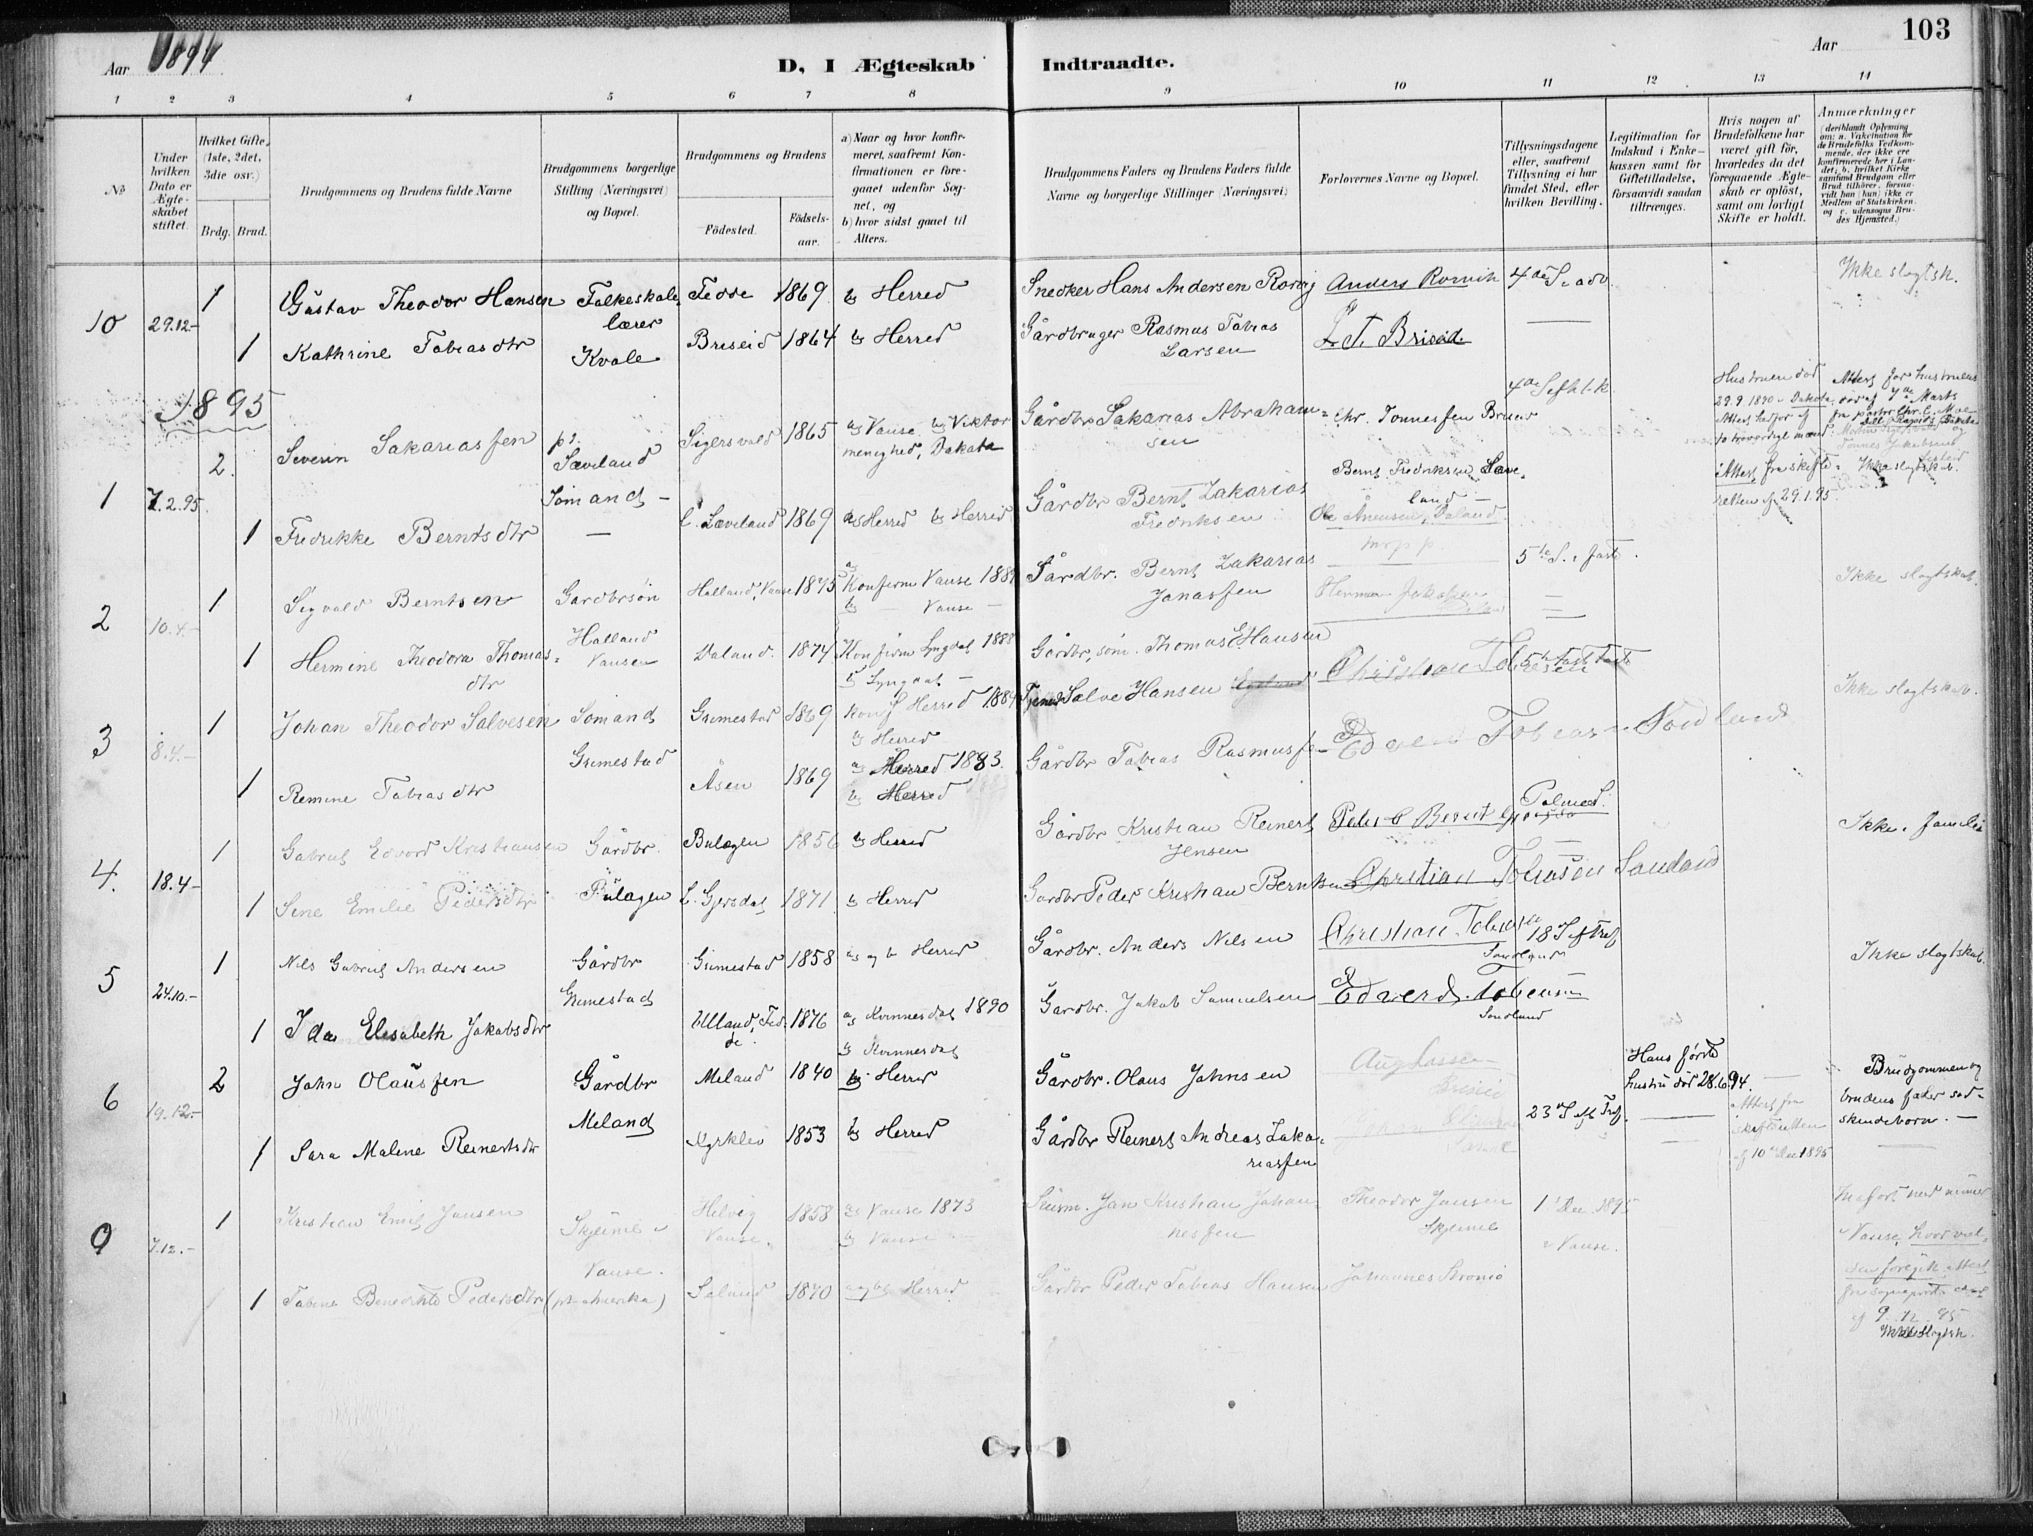 Aar 1894
D, I Ægteskab Indtraadte.
Aar
103
1 2 3 4 5 6 7 8 9 10 11 12 13 14
No
Under hvilken Dato er Ægteskabet stiftet.
Hvilket Gifte, (1ste, 2det, 3die osv.)
Brdg. Brud.
Brudgommens og Brudens fulde Navne
Brudgommens borgerlige Stilling (Næringsvei) og Bopæl.
Brudgommens og Brudens
Födested.
Födselsaar.
a) Naar og hvor konfirmeret, saafremt Konfirmationen er foregaaet udenfor Sognet, og
b) hvor sidst gaaet til Alters.
Brudgommens Faders og Brudens Faders fulde Navne og borgerlige Stillinger (Næringsvei)
Forlovernes Navne og Bopæl.
Tillysningsdagene eller, saafremt Tillysning ei har fundet Sted, efter hvilken Bevilling.
Legitimation for Indskud i Enkekassen samt for Giftetilladelse, forsaavidt saadan tiltrænges.
Hvis nogen af Brudefolkene har været gift før, hvorledes da det foregaaende Ægteskab er oplöst, samt om lovligt Skifte er holdt.
Anmærkninger
(deriblandt Oplysning om: a. Vakcination for de Brudefolks Vedkommende, der ikke ere konfirmerede her i Landet; b. hvilket Kirkesamfund Brudgom eller Brud tilhörer, forsaavidt han (hun) ikke er Medlem af Statskirken, og c. udensogns Brudes Hjemsted.)
10 29.12.- 1 Gustav Theodor Hansen Folkeskolelærer Fedde 1869 b) Herred Snedker Hans Andersen Rorvig Anders Rorvik 4de S. i adv. Ikke slægtsk.
1 Kathrine Tobiasdtr Kvale Briseid 1864 b) Herred Gårdbruger Rasmus Tobias Larsen L. T. Briseid.
1895
1 7.2.95. 2. Severin Sakariassen pt. Sæveland Sömand - Sigersvold 1865 a) Vanse, b) Viktor menighed, Dakota Gårdbr Sakarias Abrahamsen Chr. Tonnessen 4de S eft h.t.k Hustruen död 29.9.1890 i Dakota,
Attest fra skifteretten af 29.1.95. Ikke slægtskab.
1 Fredrikke Berntsdtr - L. Sæveland 1869 a) Herred b) Herred Gårdbr Bernt Zakarias Fredriksen Bernt Fredriksen Sæveland - Ole Ånensen, Daland.
2 10.4.- 1 Sigvald Berntsen Gardbrsön Halland Vansen Halland, Vanse 1875 a) Konfirm Vanse 1889 b) - Vanse - Gårdbr. Bernt Zakarias Jonassen Herman Jakobsen 5te S. i faste. Ikke slægtskab.
1 Hermine Theodora Thomasdtr Daland. 1874 Konfirm Lyngdal 1888 b) Lyngdal - Gårdbr, söm. Thomas E Hansen
3 8.4.- 1 Johan Theodor Salvesen Sömand Grimestad Grimestad 1869 konf Herred 1884 b) Herred Tjener Salve Hansen Christian Tobiasen Ikke slægtskab.
1 Remine Tobiasdtr Åsen 1869 a) Herred 1883. b) Herred Gårdbr Tobias Rasmussen Edverd Tobiasen Sondland
4. 18.4- 1 Gabriel Edvard Kristiansen Gårdbr. Bulægen Bulægen 1856 b) Herred Gårdbr Kristian Reinert Jensen Peder C Berntsen Palmes. Ikke i familie
1 Sine Emilie Pedersdtr L. Gjersdal 1871 b) Herred Gardbr Peder Kristian Berntsen Christian Tobiason Sondland
5 24.10.- 1 Nils Gabriel Andersen Gårdbr Grimestad Grimestad 1858 a) og b) Herred Gårdbr. Anders Nilsen Christian Tobiasen Sondland 18 S ef Tref Ikke slægtskab.
1 Ida Elisabeth Jakobsdtr Ulland, Fedde. 1876 a) Kvinnesdal 1890 b) Kvinnesdal Gårdbr. Jakob Samuelsen Edverd. Tobiasen Sondland
6 19.12.- 2 John Olaussen Gårdbr Meland Meland 1840 b) Herred Gårdbr. Olaus Johnsen Aug Lassen Briseid 23 S eft Tref. Hans første hustru död 28.6.94. Attest fra skifteretten af 10 Dec 1895 Brudgommen og brudens fader sødskendebörn. -
1 Sara Malene Reinertsdtr Myrklev 1853 b) Herred Gårdbr Reinert Andreas Zakariassen
9 7.12.- 1 Kristian Emil Jansen Skjeime i Vanse. Helvig Vanse. 1858 a) Vanse 1873 b) Vanse - Jan Kristian Johannessen Theodor Jansen Skjeime 1 Dec 1895 i Vanse.
Vanse, hvor vielsen foregik, attest fra sogneprest af 9.12.95 Ikke slægtsk.
1 Tobine Benedikte Pedersdtr (pt Amerika) Saland 1870 a) og b) Herred Gårdbr Peder Tobias Hansen Johannes